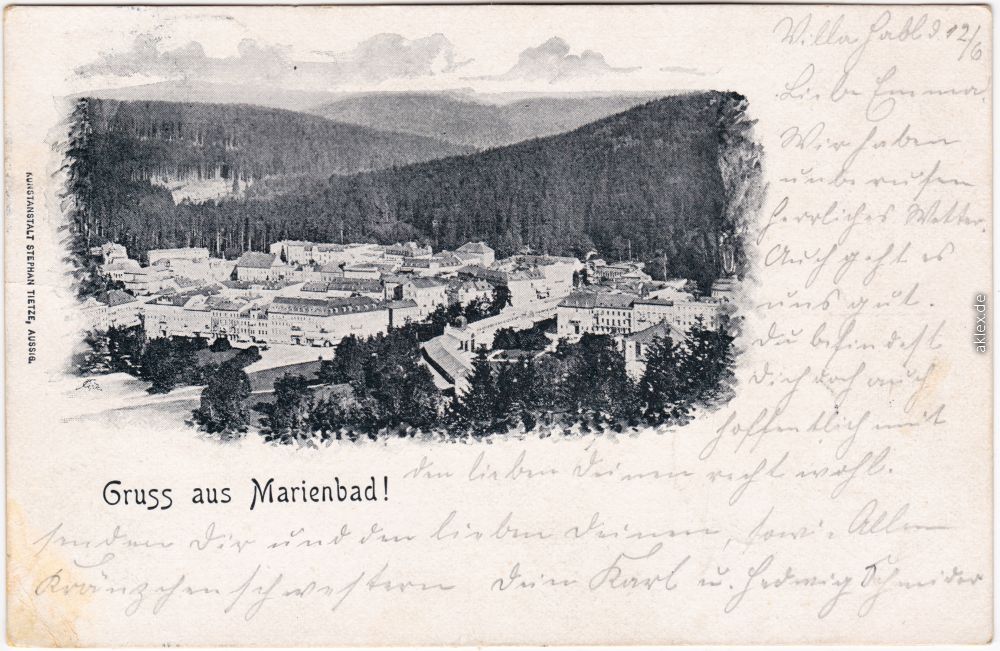 Villa Habl d. 12/6
Liebe Emma.
Wir haben
unberufen
herrliches Wetter.
Auch geht es
uns gut.
Du befindest
Dich doch auch
hoffentlich mit
den lieben Deinen recht wohl.
senden Dir und den lieben Deinen, sowie Allen
Kränzchenschwestern Dein Karl u. Hedwig Schneider
Gruss aus Marienbad!
KUNSTANSTALT STEPHAN TIETZE, AUSSIG.
aklex.de